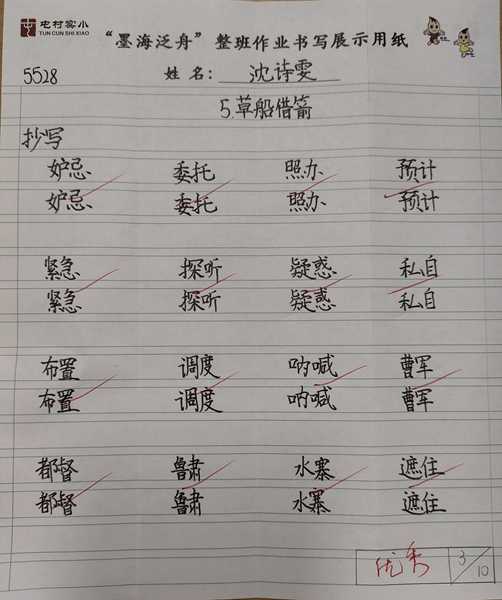 屯村实小
TUN CUN SHI XIAO
“墨海泛舟”整班作业书写展示用纸
5528
姓名：沈诗雯
5.草船借箭
抄写
妒忌 委托 照办 预计
妒忌 委托 照办 预计
紧急 探听 疑惑 私自
紧急 探听 疑惑 私自
布置 调度 呐喊 曹军
布置 调度 呐喊 曹军
都督 鲁肃 水寨 遮住
都督 鲁肃 水寨 遮住
优秀 3/10